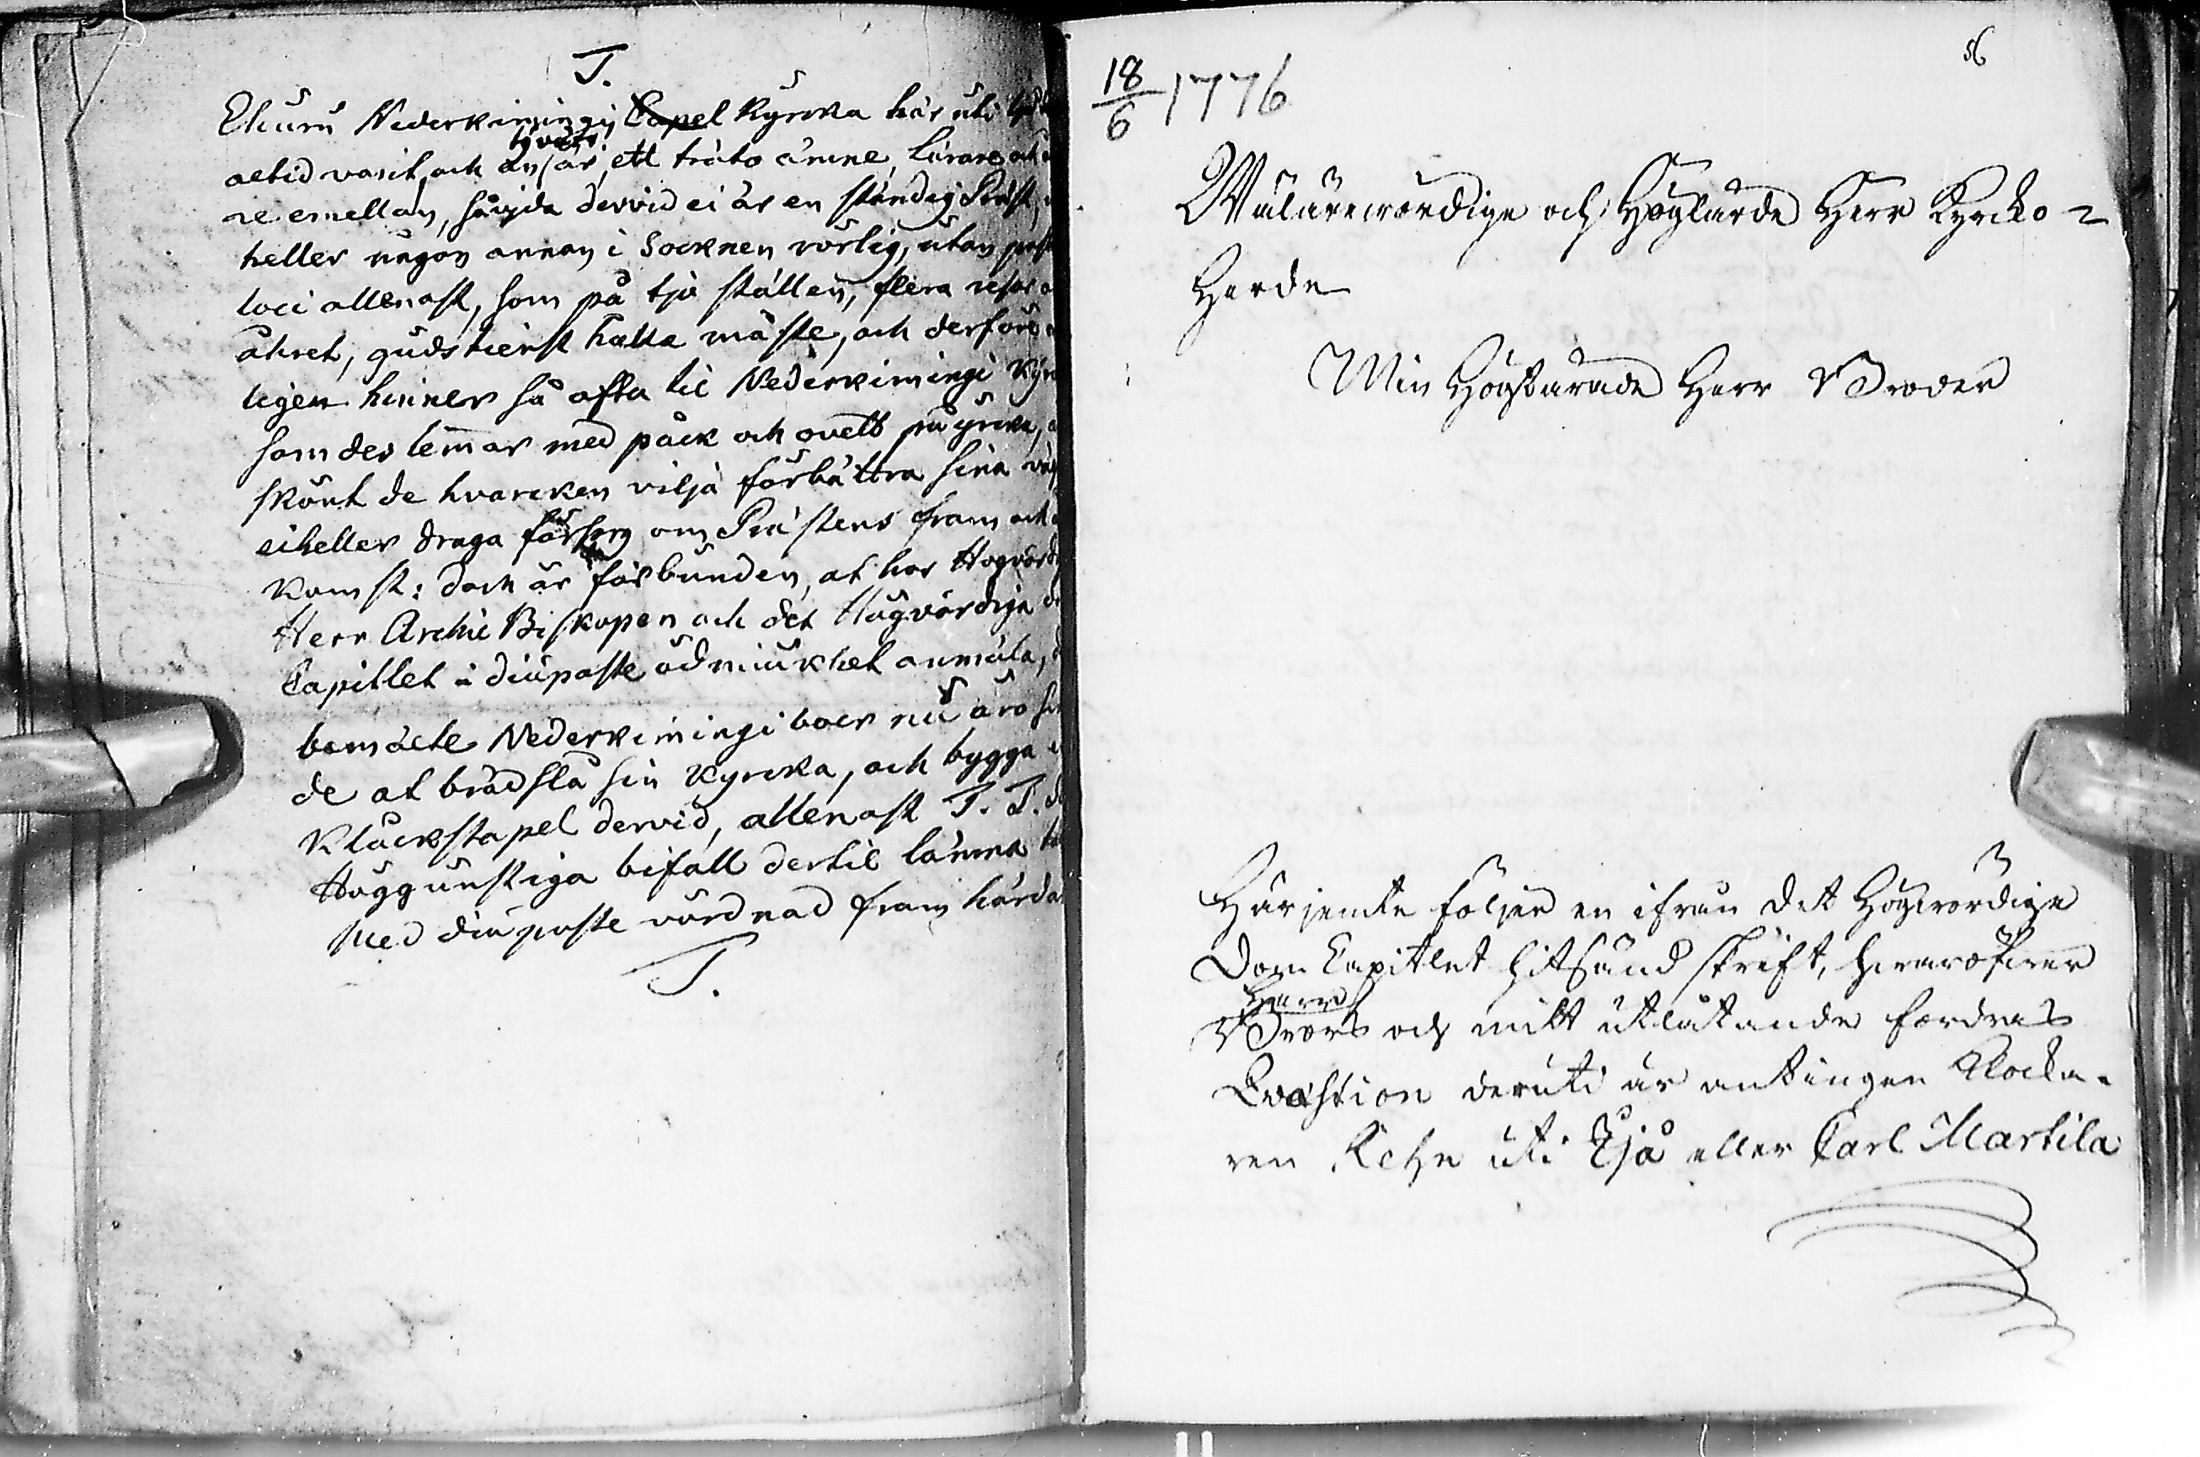 T.
Ehuru Nederkimingi Capel Kyrcka här uti
altid varit, och hvars är, ett träto ämne, lärare och
ne emellan, såvida dervid ei är en ständig Präst,
heller någon annan i Socknen rörlig, utan past
loci allenast, som på tju ställen, flera resor
åhret, gudstienst halla måste, och derföre
ligen hinner så ofta til Nederkimingi Kyr
som des lemmar med påck och ovett på yrcka,
skönt de hvarcken vilja förbättra sina väg
eiheller draga försorg om Prästens fram och
komst: doch är förbunden, at hos Högvördi
Herr Archie Biskopen och det Högvördiga
Capitlet i diupaste ödmiukhet anmäla,
bemälte Nederkimingi boer nu äro
de at brädslå sin Kyrcka, och bygga
Klåckstapel dervid, allenast T. T.
Höggunstiga bifall dertil lämna
Med diupaste vördnad fram härdar
T.
56
18/6 1776
Wälärewördige och Höglärde Herr Kyrcko-
Herde
Min Högtärade Herr Broder
Härjemte följer en ifrån det Högwördige
Dom Capitlet hitsänd skrift, hwaröfwer
Herr
Brors och mitt utlåtande fordras
Quæstion deruti är antingen Klocka-
ren Kehn uti Ijå eller Carl Martila